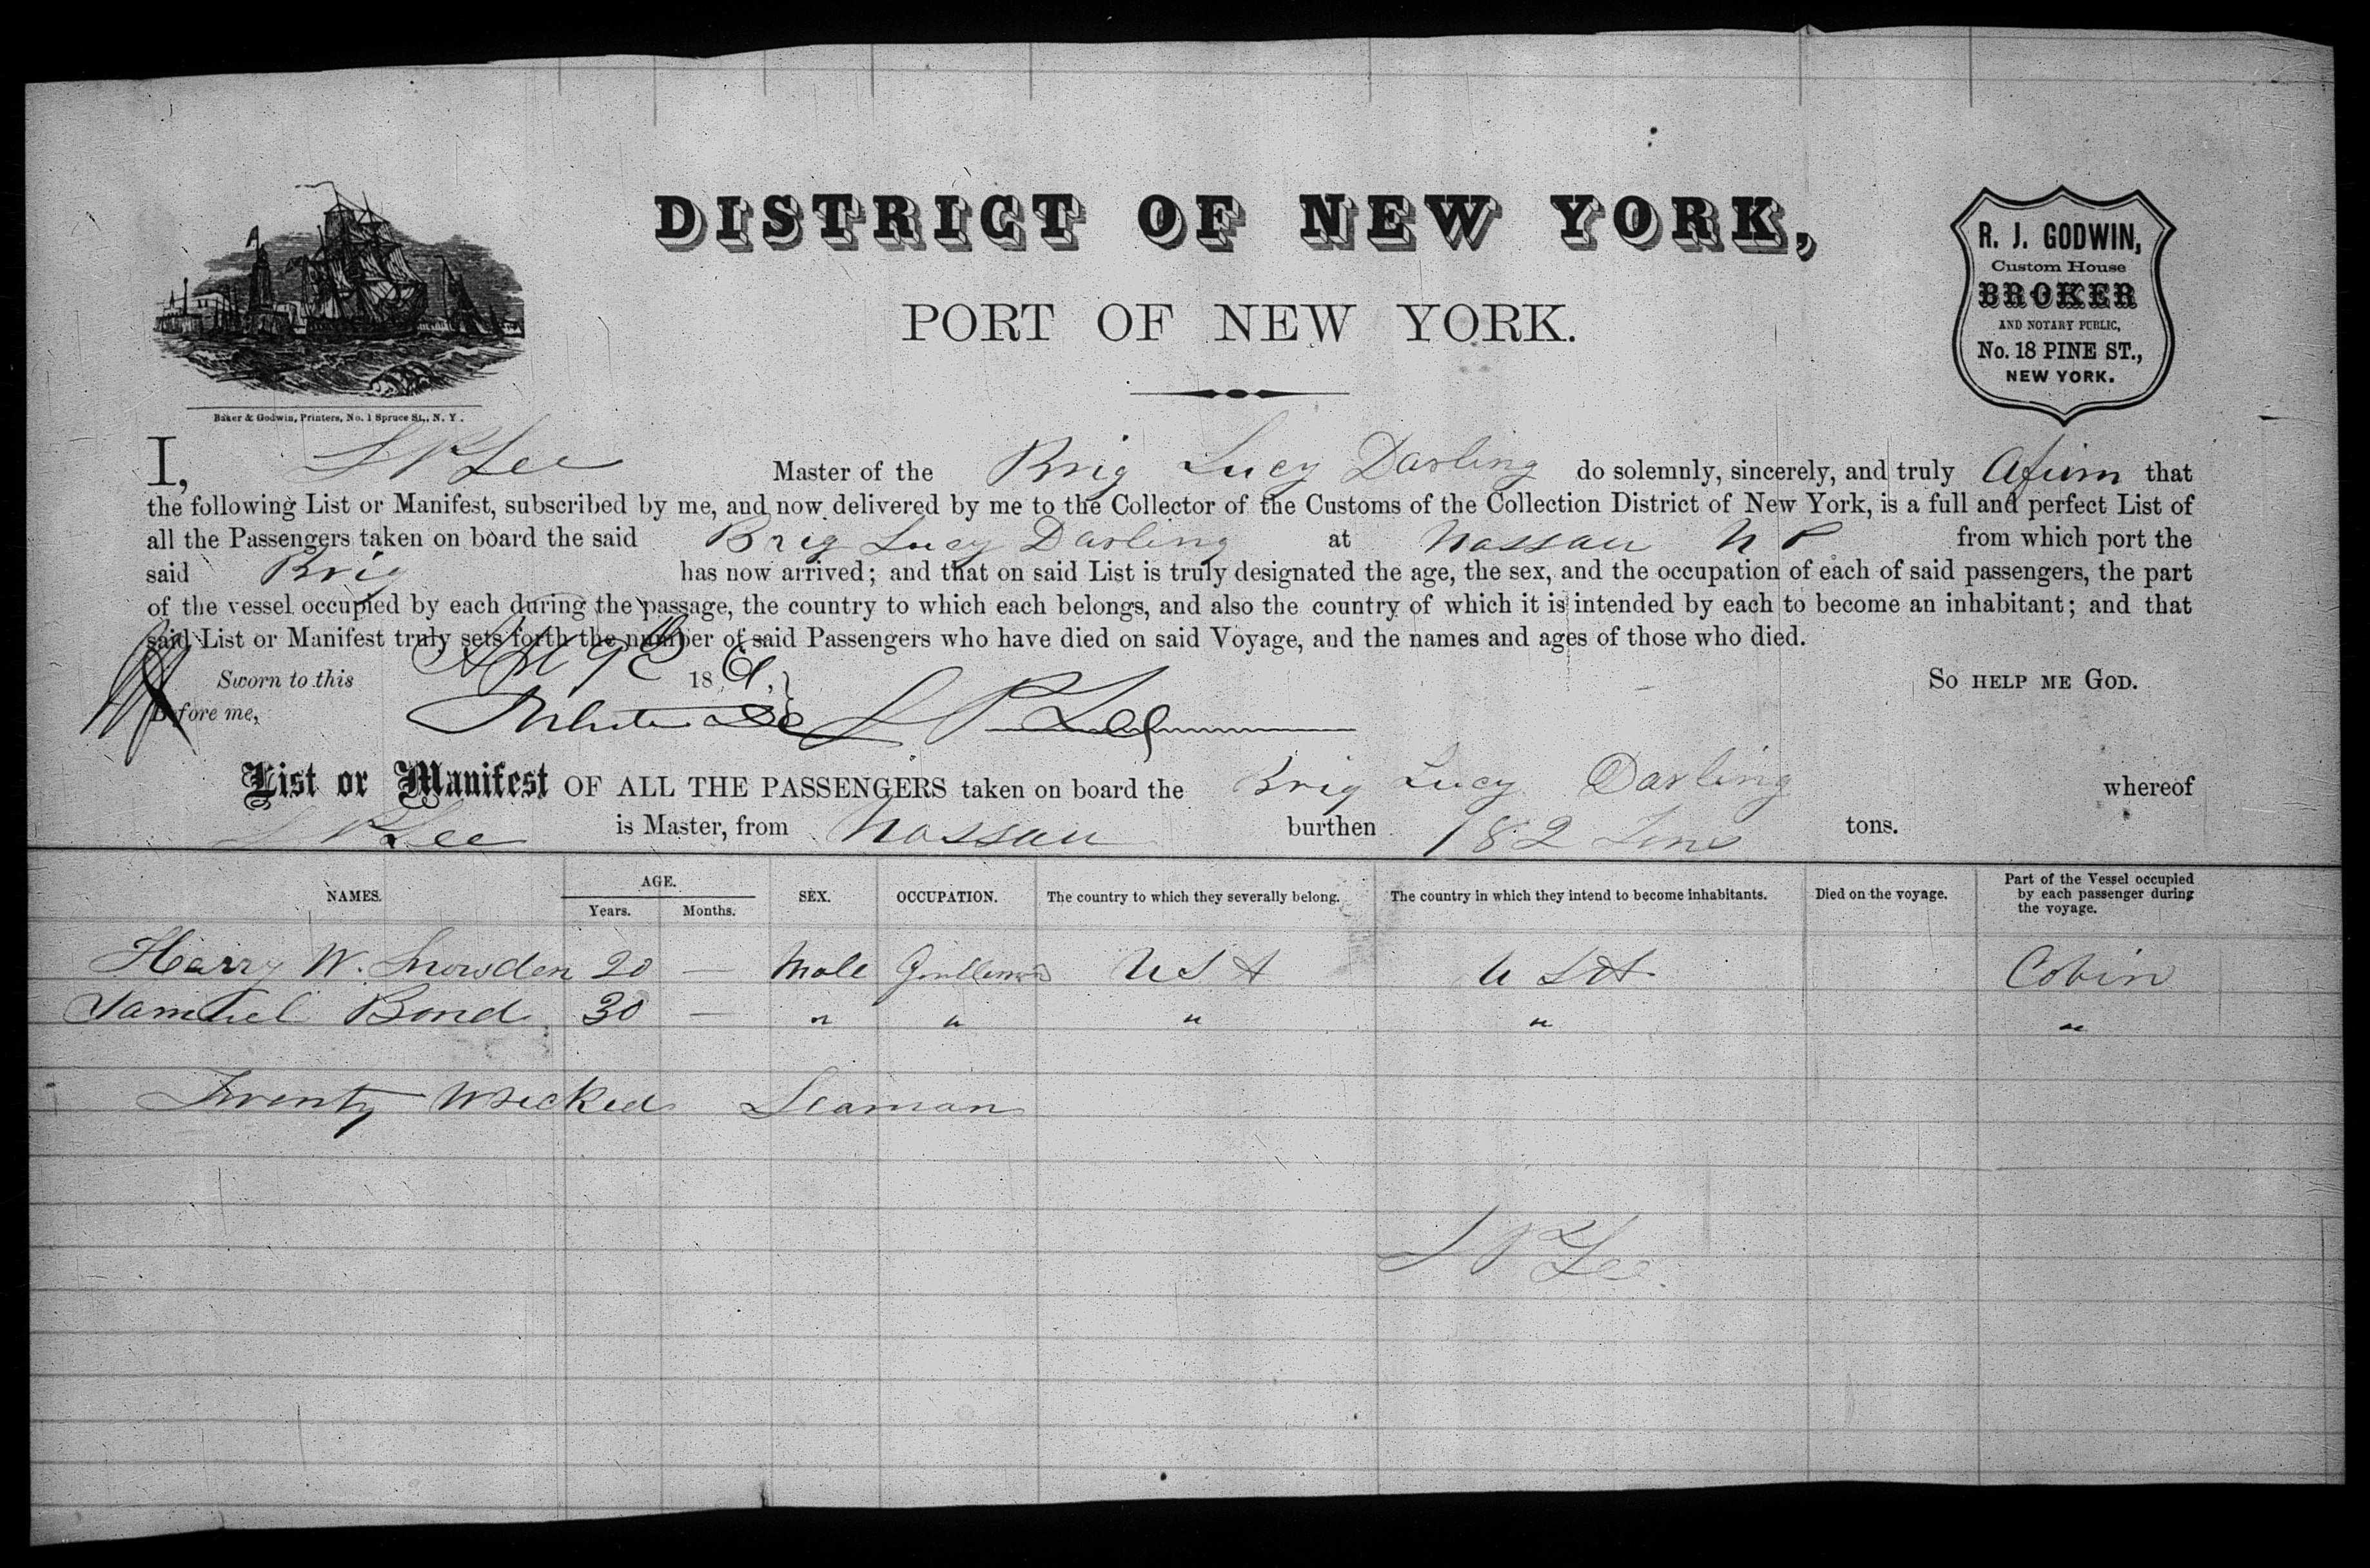 DISTRICT OF NEW YORK,
PORT OF NEW YORK.
R. J. GODWIN,
Custom House
BROKER
AND NOTARY PUBLIC,
No. 18 PINE ST.,
NEW YORK.
Baker & Godwin, Printers, No. 1 Spruce St., N. Y.
I, L P Lee Master of the Brig Lucy Darling do solemnly, sincerely, and truly Afirm that
the following List or Manifest, subscribed by me, and now delivered by me to the Collector of the Customs of the Collection District of New York, is a full and perfect List of
all the Passengers taken on board the said Brig Lucy Darling at Nassau N P from which port the
said Brig has now arrived; and that on said List is truly designated the age, the sex, and the occupation of each of said passengers, the part
of the vessel occupied by each during the passage, the country to which each belongs, and also the country of which it is intended by each to become an inhabitant; and that
said List or Manifest truly sets forth the number of said Passengers who have died on said Voyage, and the names and ages of those who died.
Sworn to this 186 So help me God.
Before me, L P Lee
List or Manifest OF ALL THE PASSENGERS taken on board the Brig Lucy Darling whereof
L P Lee is Master, from Nassau burthen 182 Tons tons.
NAMES. AGE. Years. Months. SEX. OCCUPATION. The country to which they severally belong. The country in which they intend to become inhabitants. Died on the voyage. Part of the Vessel occupied by each passenger during the voyage.
Harry W. Snowden 20 — Male Gentleman U S A U S A Cabin
Samuel Bond 30 — " " " " "
Twenty Wrecked Seaman
L P Lee